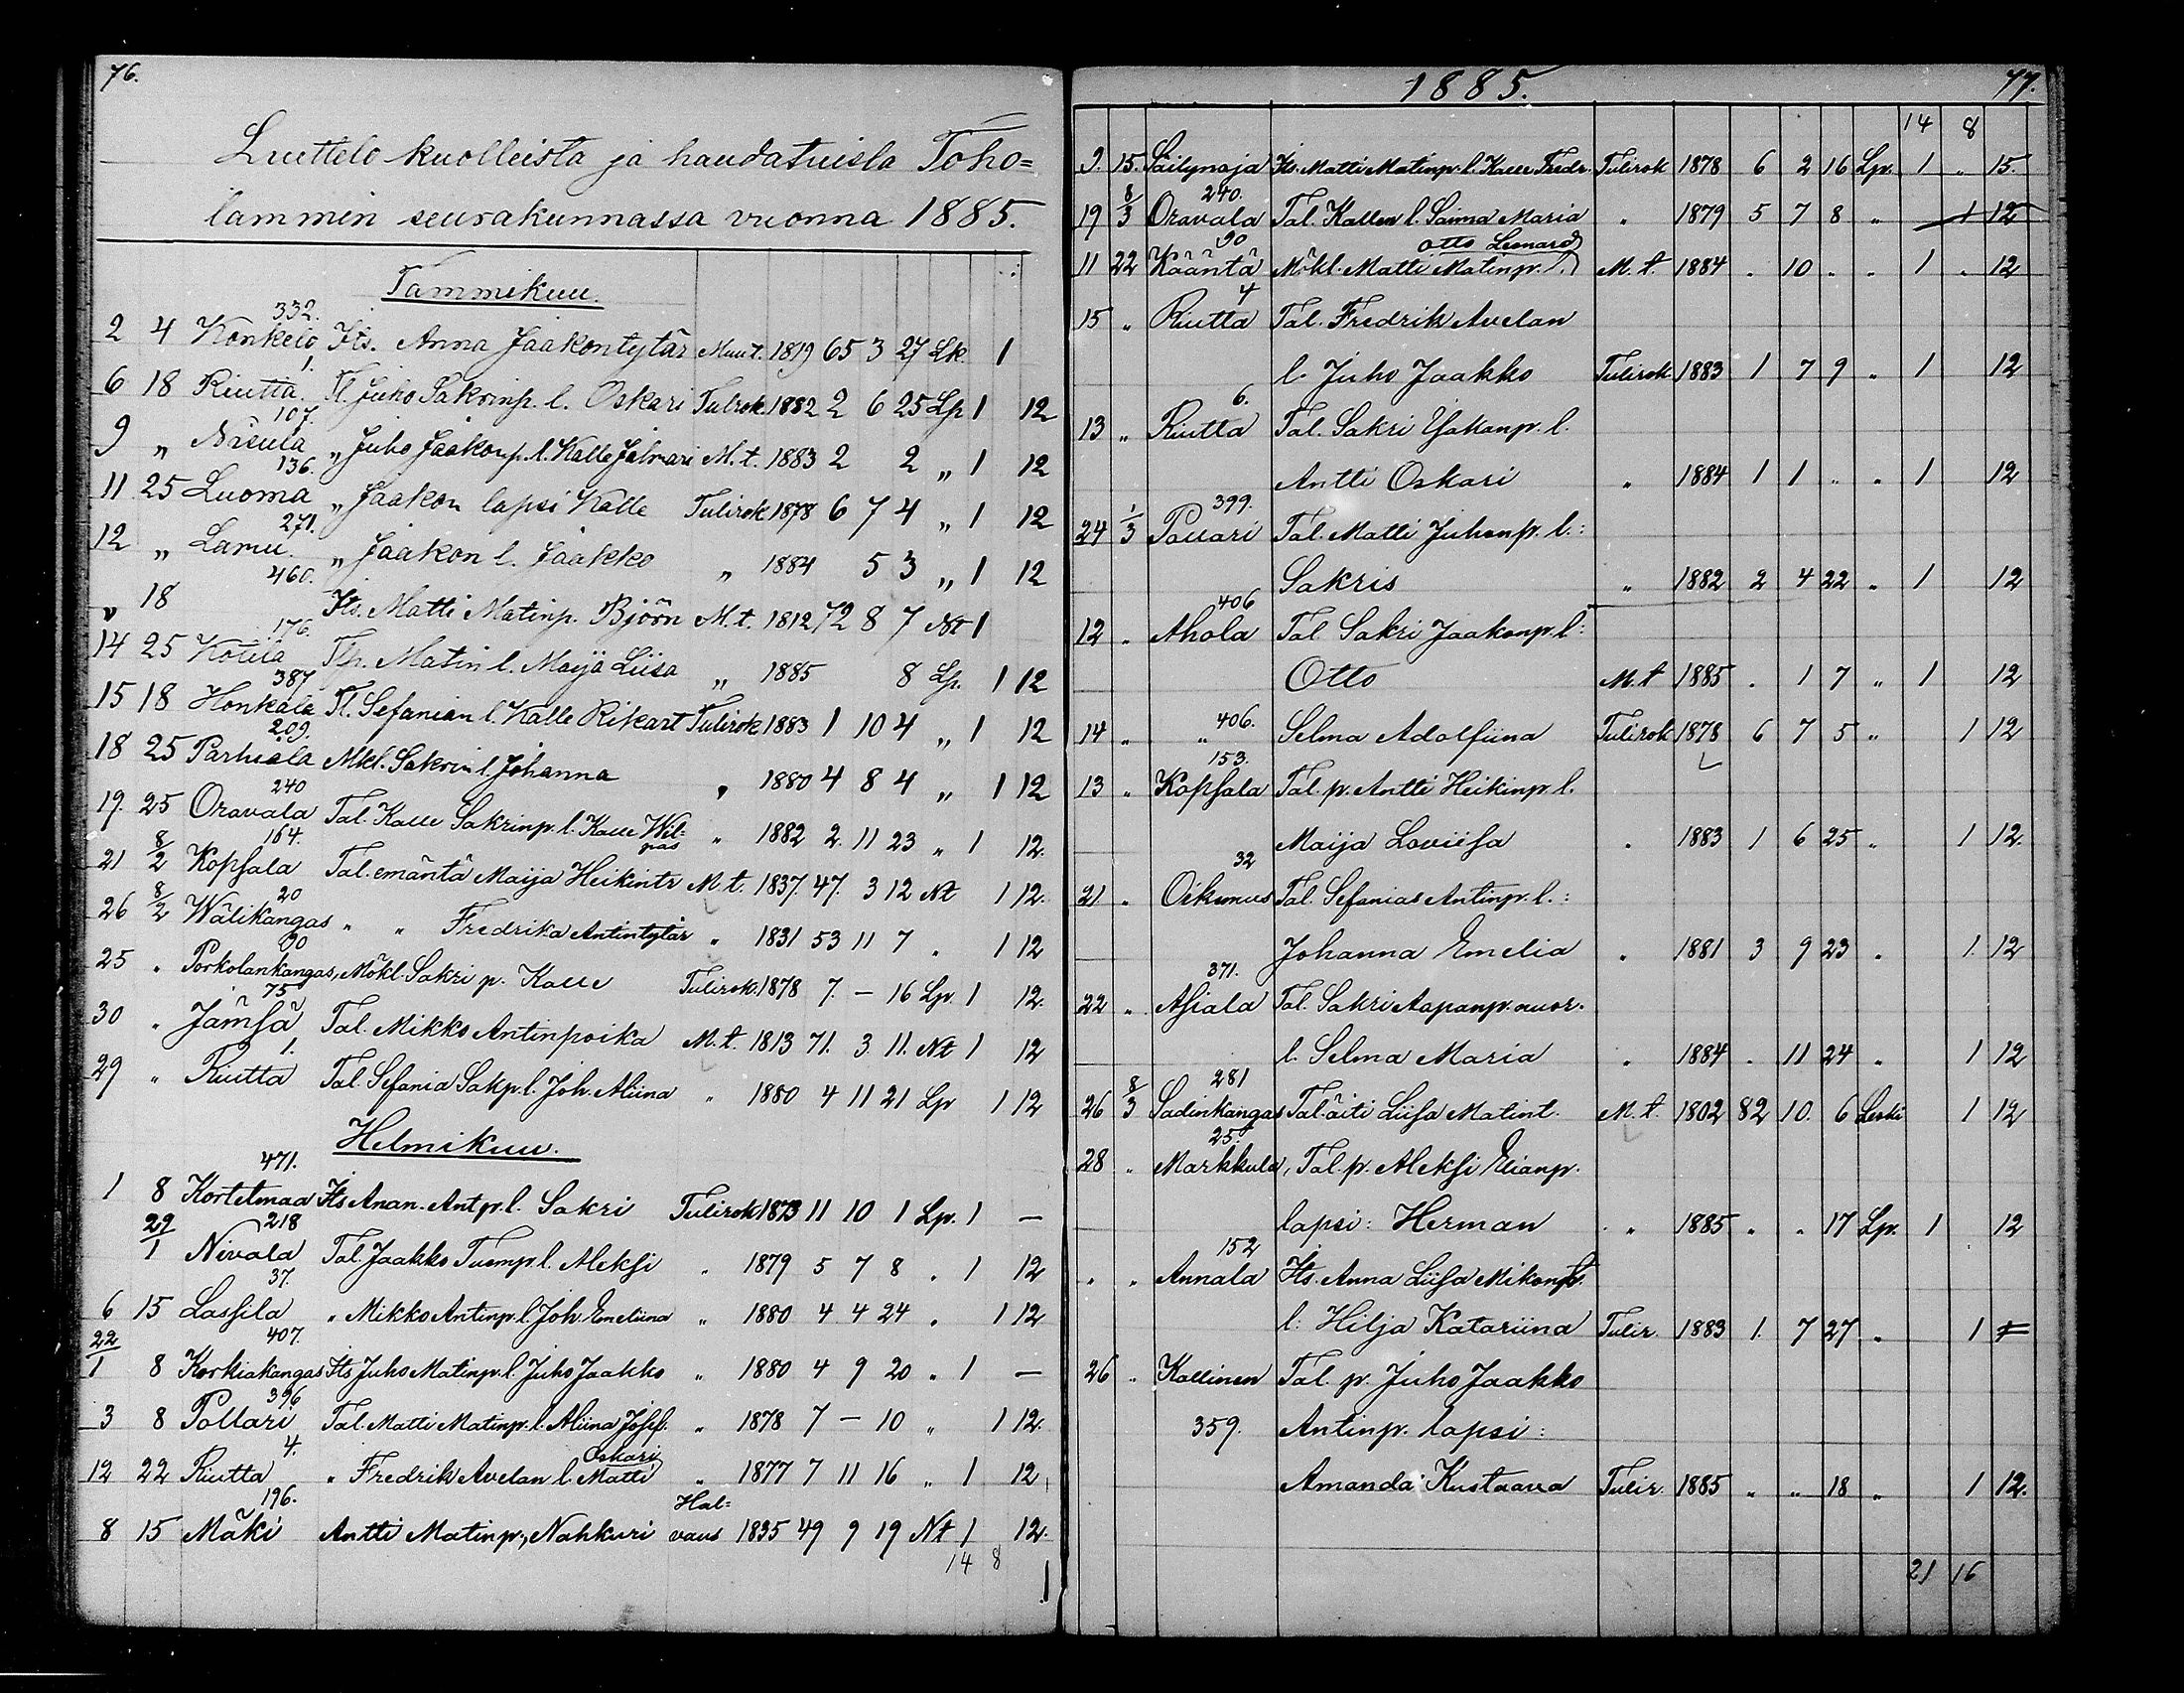 76.
Luettelo kuolleista ja haudatuista Toho=
lammin seurakunnassa vuonna 1885.
Tammikuu.
332.
2 4 Konkelo Its. Anna Jaakontytär Muut. 1819 65 3 27 Lk. 1
1.
6 18 Riutta. Tl. Juho Sakrinp. l. Oskari Tulirok 1882 2 6 25 Lp 1 12
107.
9 „ Nisula „ Juho Jaakonp. l. Kalle Jalmari M.t. 1883 2 2 „ 1 12
136.
11 25 Luoma „ Jaakon lapsi Kalle Tulirok 1878 6 7 4 „ 1 12
271.
12 „ Lamu. „ Jaakon l. Jaakko „ 1884 5 3 „ 1 12
460.
„ 18 Its. Matti Matinp. Björn M.t. 1812 72 8 7 Nt 1
176.
14 25 Kotila Tlp. Matin l. Maija Liisa „ 1885 8 Lp. 1 12
387
15 18 Honkala Tl. Sefanian l. Kalle Rikart Tulirok 1883 1 10 4 „ 1 12
209.
18 25 Parhiala Mkl. Sakrin l. Johanna „ 1880 4 8 4 „ 1 12
240
19. 25 Oravala Tal. Kalle Sakrinp. l. Kalle Wil=
pas „ 1882 2. 11 23 „ 1 12.
164.
21 8/2 Kopsala Tal. emäntä Maija Heikintr M.t. 1837. 47. 3 12 Nt 1 12.
20
26 8/2 Wälikangas „ „ Fredrika Antintytär „ 1831 53 11 7 „ 1 12
90
25 „ Porkolankangas, Mökl. Sakri p. Kalle Tulirok. 1878 7. — 16 Lp. 1 12.
75
30 „ Jämsä Tal. Mikko Antinpoika M.t. 1813 71. 3. 11. Nt 1 12
1.
29 „ Riutta Tal. Sefania Sakp. l. Joh. Aliina „ 1880 4 11 21 Lp 1 12
Helmikuu.
471.
1 8 Kortetmaa Its Anan. Antp. l. Sakri Tulirok 1873 11 10 1 Lp. 1 —
218
29/1 Nivala Tal. Jaakko Tuomp. l. Aleksi „ 1879 5 7 8 „ 1 12
37.
6 15 Lassila „ Mikko Antinp. l. Joh. Emeliina „ 1880 4 4 24 „ 1 12
407.
22/1 8 Korkiakangas Its Juho Matinp. l. Juho Jaakko „ 1880 4 9 20 „ 1 —
396
3 8 Pollari Tal. Matti Matinp. l. Aliina Josef. „ 1878 7 — 10 „ 1 12.
4. Oskari
12 22 Riutta „ Fredrik Avelan l. Matti „ 1877 7 11 16 „ 1 12
196. Hal=
8 15 Mäki Antti Matinp., Nahkuri vaus 1835 49 9 19 Nt 1 12.
14 8
1885. 77.
14 8
9. 15. Säilynoja Its. Matti Matinp. l. Kalle Fredr. Tulirok 1878 6 2 16 Lp. 1 „ 15.
240.
19 8/3 Oravala Tal. Kallen l. Saima Maria „ 1879 5 7 8 „ 1 12
90 Otto Leonard
11 22 Kääntä Mökl. Matti Matinp. l. M.t. 1884 „ 10 „ „ 1 „ 12
4
15 „ Riutta Tal. Fredrik Avelan
l. Juho Jaakko Tulirok 1883 1 7 9 „ 1 12
6.
13 „ Riutta Tal. Sakri Isakanp. l.
Antti Oskari „ 1884 1 1 „ „ 1 12
399.
24 1/3 Pollari Tal. Matti Juhonp. l.:
Sakris „ 1882 2 4 22 „ 1 12
406
12 „ Ahola Tal. Sakri Jaakonp. l:
Otto M.t 1885 „ 1 7 „ 1 12
14 „ „ 406. Selma Adolfiina Tulirok 1878 6 7 5 „ 1 12
153.
13 „ Kopsala Tal. p. Antti Heikinp. l.
Maija Loviisa „ 1883 1 6 25 „ 1 12.
32
21 „ Oikemus Tal. Sefanias Antinp. l.:
Johanna Emelia „ 1881 3 9 23 „ 1. 12
371.
22 „ Asiala Tal. Sakri Aapanp. nuor.
l. Selma Maria „ 1884 „ 11 24 „ 1 12
281
26 8/3 Sadinkangas Tal. äiti Liisa Matint. M.t. 1802 82 10. 6 Leski 1 12
25.
28 „ Markkula, Tal. p. Aleksi Elianp.
lapsi: Herman „ 1885 „ „ 17 Lp. 1 12
152
„ „ Annala Its. Anna Liisa Mikont.
l: Hilja Katariina Tulir. 1883 1. 7 27 „ 1
26 „ Kallinen Tal. p. Juho Jaakko
359. Antinp. lapsi:
Amanda Kustaava Tulir. 1885 „ „ 18 „ 1 12.
21 16